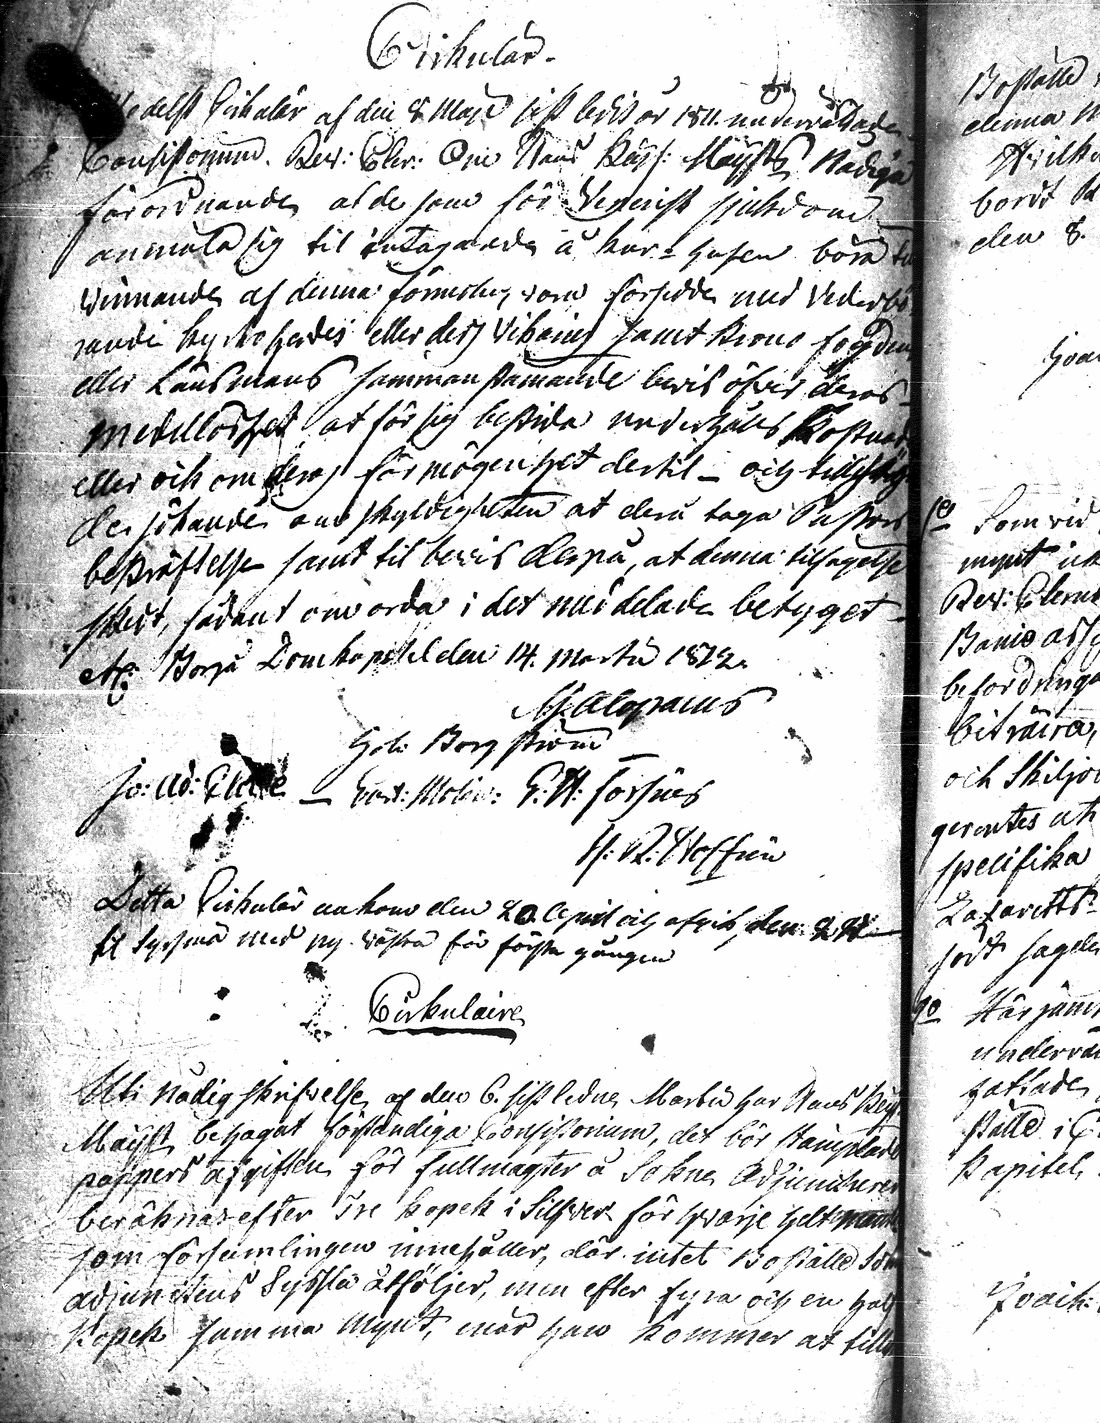 Cirkulär.
medelst Cirkulär af den 8 Maji sist ledit år 1811. underrättade
Consistorium. Rev: Cler: Om Hans Kejs: Maijsts Nådiga
förordnande, at de som för Venerisk sjukdom
anmäla sig til intagande å Kur-husen böra til
winnande af denna förmohn, vara försedde med Vederbö-
rande Kyrkoherdes eller dess Vikaries samt Krono fogdens
eller Länsmans sammanstämande bevis öfver deras
medellöshet at för sig bestrida underhålls Kostnad
eller och om deras förmögenhet dertil – och tillhölg
de sökande om skyldigheten at derå taga Pastors
bekräftelse samt til bevis derpå, at denna tilsägelse
skedt, sådant om orda i det meddelade betyget.
Borgå Domkapitel den 14. Martii 1812.
M: Alopæus
Gab: Borgström
Jo: Ad: — Gust: Molin: G: H: Forsius
H: R: Hoffrén
Detta Cirkulär ankom den 20. April och afgik den 24
til Sysmä med ny för första gången
2. Cirkulaire
Uti Nådig skrifvelse af den 6. sistledne Martii har Hans Kejs:
Maijst behagat förständiga Consistorium, det bör Stämplade
pappers afgiften för fullmagter å Sokne Adjuncturer
beräknas efter Tre kopek i Silfver för hvarje helt mantal
som församlingen innehåller, där intet Boställe som
adjunctens Syssla åtföljer, men efter fyra och en half
Kopek samma Mynt, när han kommer at till
Boställe
denna
Hvilk
bordt
den 8.
Joa
1o Som vid
mynt ick
Rev: Cleru
befordringa
biträda,
och Skiljo
gerontes at
specifika
Lazaretts-
jort sagde
9o Här jämt
underrä
fattade
stälte i C
Kapitel
Joach: